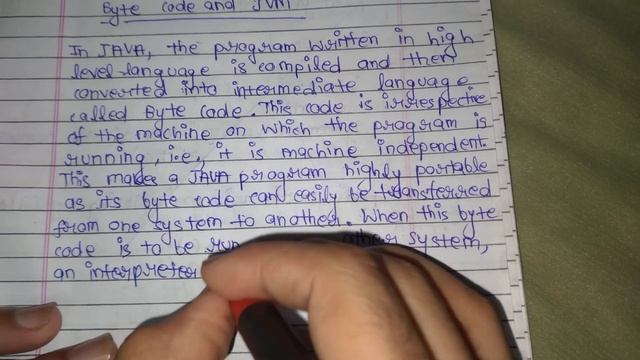 Byte code and JVM
In JAVA, the program written in high
level language is compiled and then
converted into intermediate language
called Byte Code. This code is irrespective
of the machine on which the program is
running, i.e., it is machine independent.
This makes a JAVA program highly portable
as its byte code can easily be transferred
from one system to another. When this byte
code is to be run other system,
an interpreter